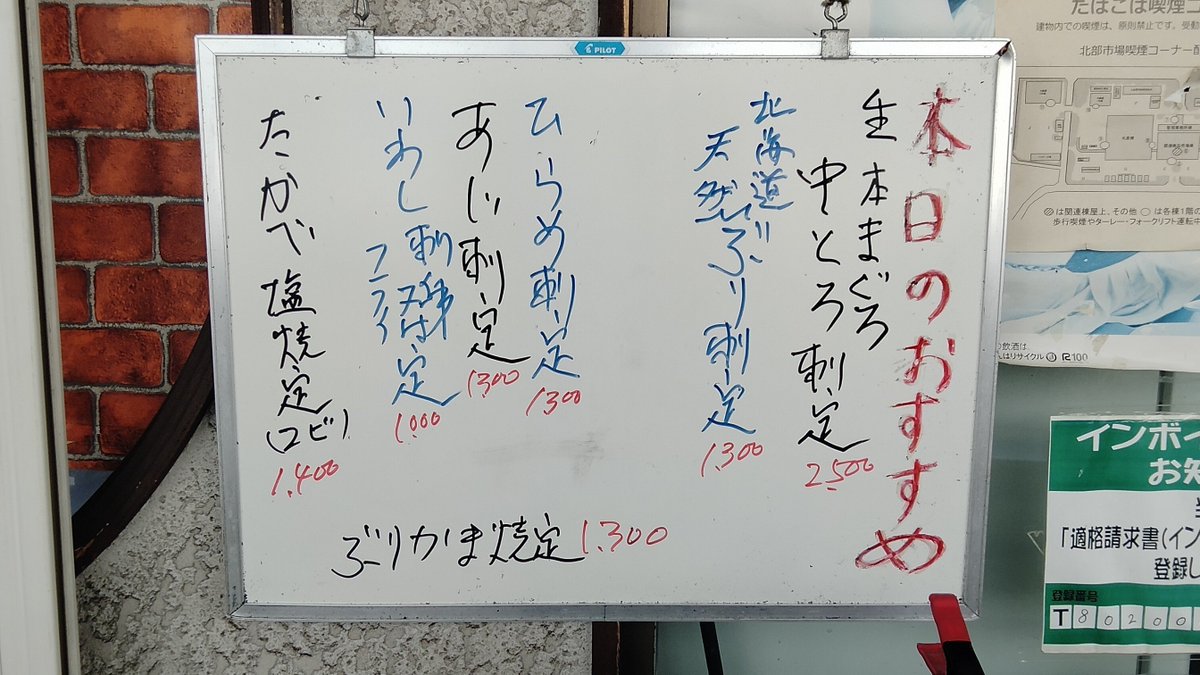 本日のおすすめ
生本まぐろ
中とろ刺定
2.500
北海道
天然ぶり刺定
1.300
ひらめ刺定
1300
あじ刺定
1300
いわし刺身又は定
フライ
1.000
たかべ塩焼定
1.400
ぶりかま焼定1.300
PILOT
たばこは喫煙コ
建物内での喫煙は、原則禁止です。受動
北部市場喫煙コーナー配
は関連棟屋上、その他○は各棟1階の
歩行喫煙やターレー・フォークリフト運転中
の飲酒は
R100
インボイ
お知
「適格請求書(イン
登録し
登録番号
T80200